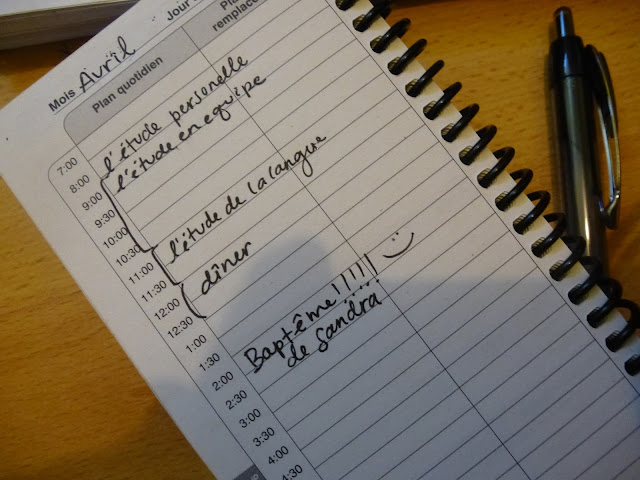 Mois Avril Jour
Plan quotidien
7:00
8:00 l'étude personelle
9:00 l'étude en equipe
9:30
10:00
10:30
11:00 l'étude de la langue
11:30
12:00 dîner
12:30
1:00
1:30
2:00 Baptême!!!!! :)
2:30 de Sandra
3:00
3:30
4:00
4:30